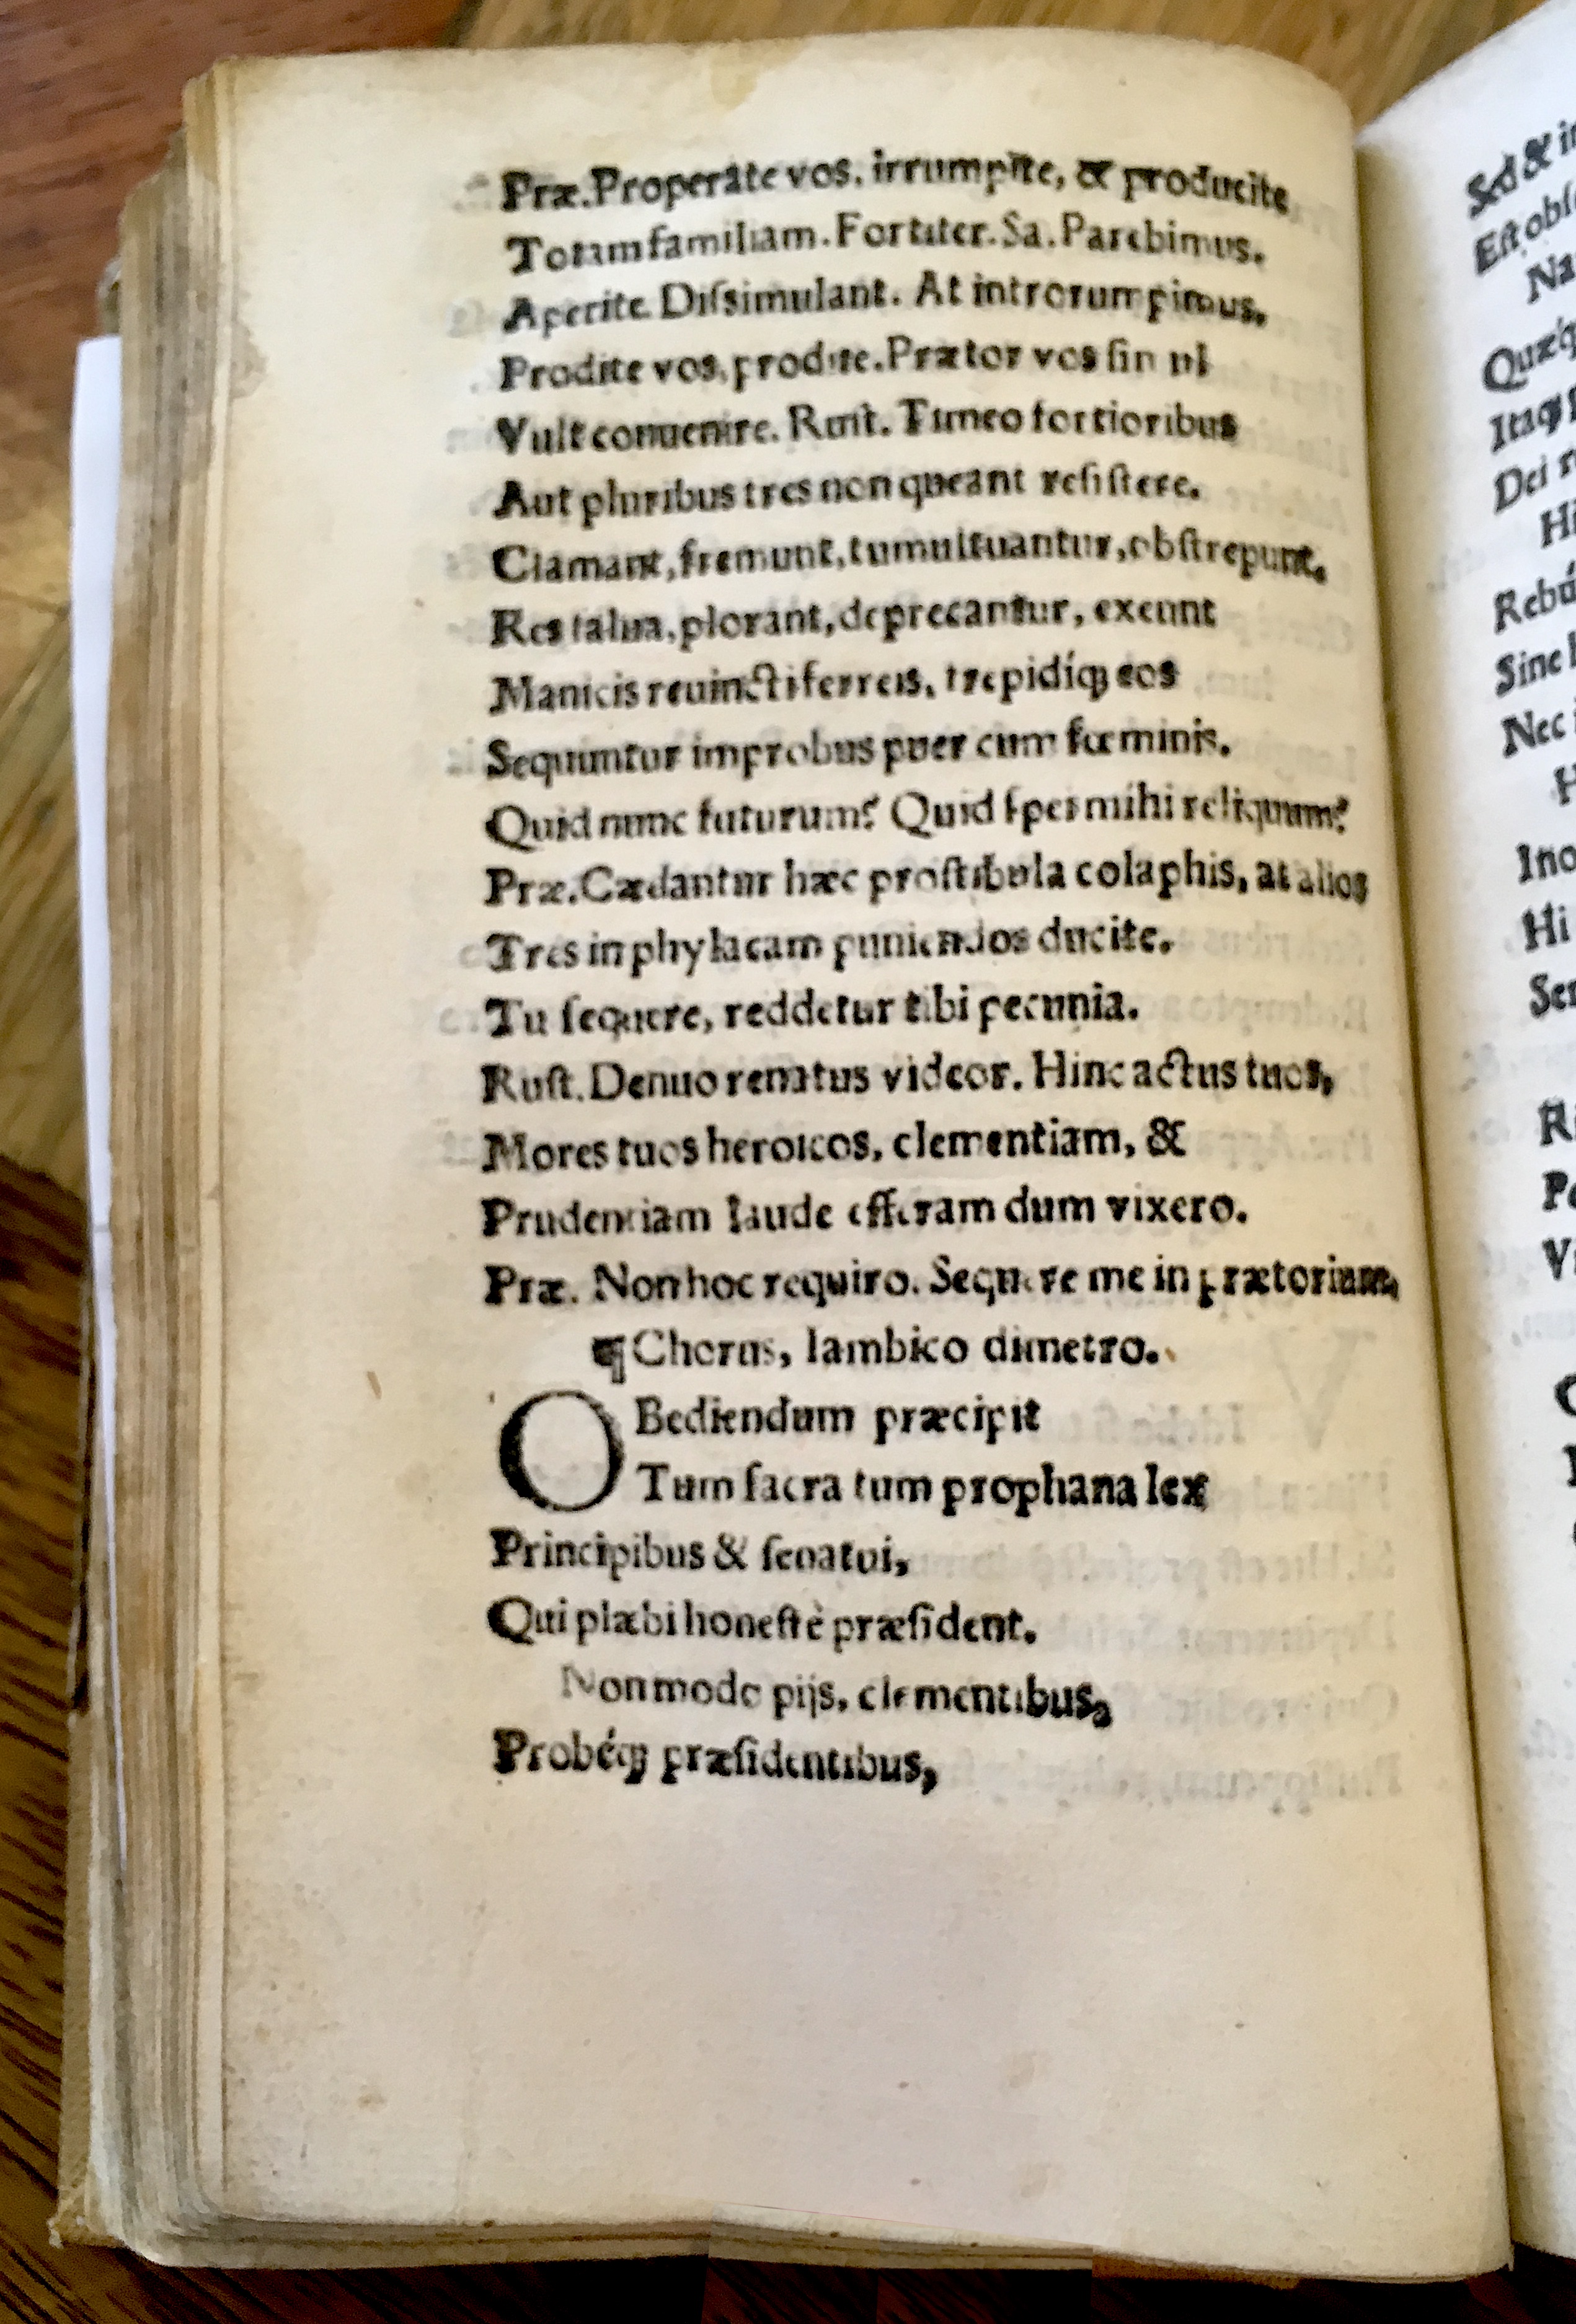 Præ. Properate vos, irrumpite, & producite
Totam familiam. Fortiter. Sa. Parebimus.
Aperite. Diſsimulant. At introrumpimus.
Prodite vos, prodite. Prætor vos ſimul
Vult conuenire. Ruſt. Timeo fortioribus
Aut pluribus tres non queant reſiſtere.
Clamant, fremunt, tumultuantur, obſtrepunt.
Res ſalua, plorant, deprecantur, exeunt
Manicis reuincti ferreis, trepidíq; eos
Sequuntur improbus puer cum fœminis.
Quid nunc futurum? Quid ſpei mihi reliquum?
Præ. Cædantur hæc proſtibula colaphis, at alios
Tres in phylacam puniendos ducite.
Tu ſequere, reddetur tibi pecunia.
Ruſt. Denuo renatus videor. Hinc actus tuos,
Mores tuos heroicos, clementiam, &
Prudentiam laude efferam dum vixero.
Præ. Non hoc requiro. Sequere me in prætorium,
¶ Chorus, Iambico dimetro.
OBediendum præcipit
Tum ſacra tum prophana lex
Principibus & ſenatui,
Qui plæbi honeſtè præſident.
Non modo pijs, clementibus,
Probéq; præſidentibus,
Sed & 
Eſt 
Na
Dei
Hi
Sine
Nec
Hi